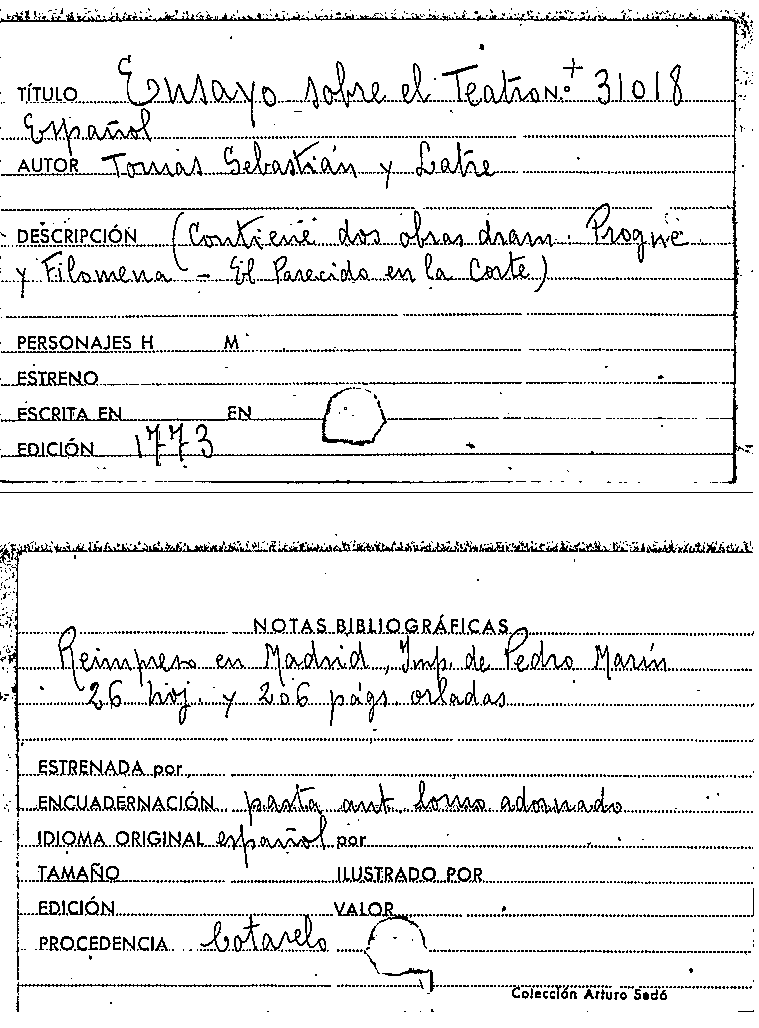 TÍTULO Ensayo sobre el Teatro N.º + 31018
Español
AUTOR Tomás Sebastián y Latre
DESCRIPCIÓN (Contiene dos obras dram. Progne
y Filomena - El Parecido en la Corte)
PERSONAJES H M
ESTRENO
ESCRITA EN EN
EDICIÓN 1773
NOTAS BIBLIOGRÁFICAS
Reimpreso en Madrid, Imp. de Pedro Marín
26 hoj. y 206 págs. orladas
ESTRENADA por
ENCUADERNACIÓN pasta ant. lomo adornado
IDIOMA ORIGINAL español por
TAMAÑO ILUSTRADO POR
EDICIÓN VALOR
PROCEDENCIA Cotarelo
Colección Arturo Sedó